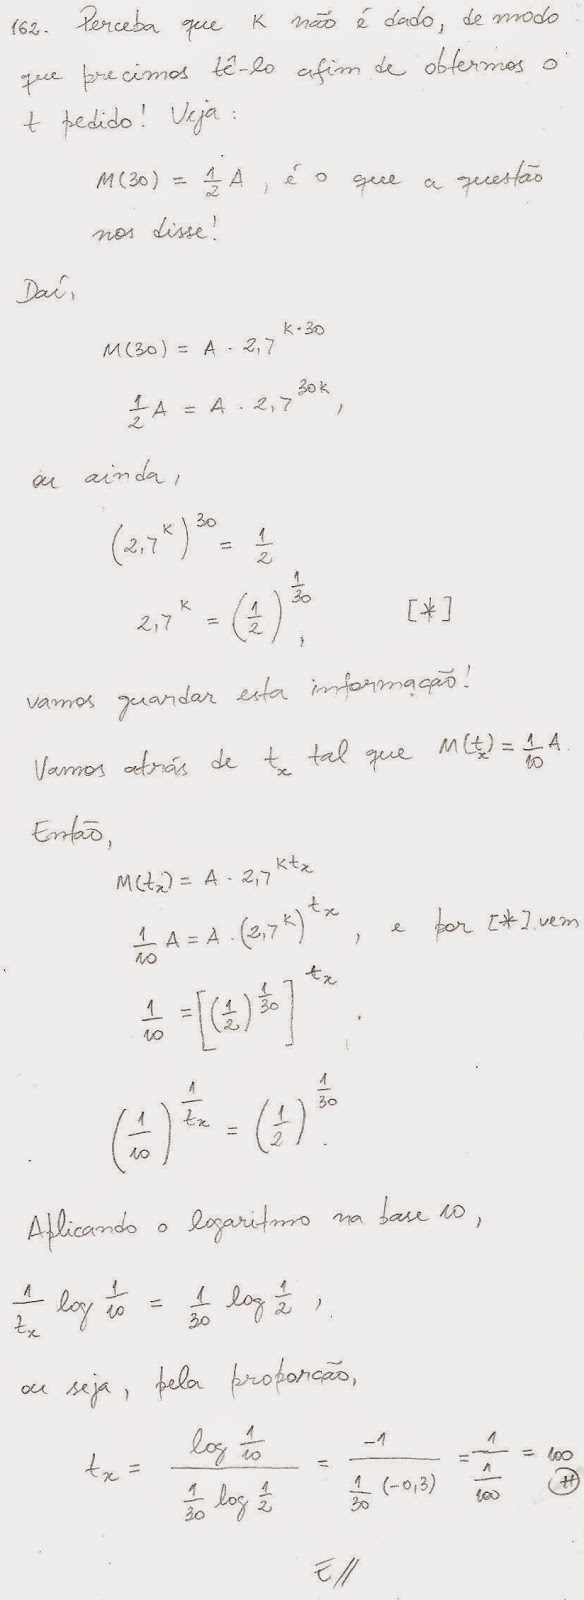 162. Perceba que K não é dado, de modo
que precimos tê-lo afim de obtermos o
t pedido! Veja:
M(30) = 1/2 A, é o que a questão
nos disse!
Daí,
M(30) = A · 2,7^(K·30)
1/2 A = A · 2,7^(30K),
ou ainda,
(2,7^K)^30 = 1/2
2,7^K = (1/2)^(1/30), [*]
vamos guardar esta informação!
Vamos atrás de t_x tal que M(t_x) = 1/10 A.
Então,
M(t_x) = A · 2,7^(Kt_x)
1/10 A = A · (2,7^K)^(t_x), e por [*] vem
1/10 = [(1/2)^(1/30)]^(t_x).
(1/10)^(1/t_x) = (1/2)^(1/30).
Aplicando o logaritmo na base 10,
1/t_x log 1/10 = 1/30 log 1/2,
ou seja, pela proporção,
t_x = (log 1/10)/(1/30 log 1/2) = -1/(1/30 (-0,3)) = 1/(1/100) = 100 H
E//